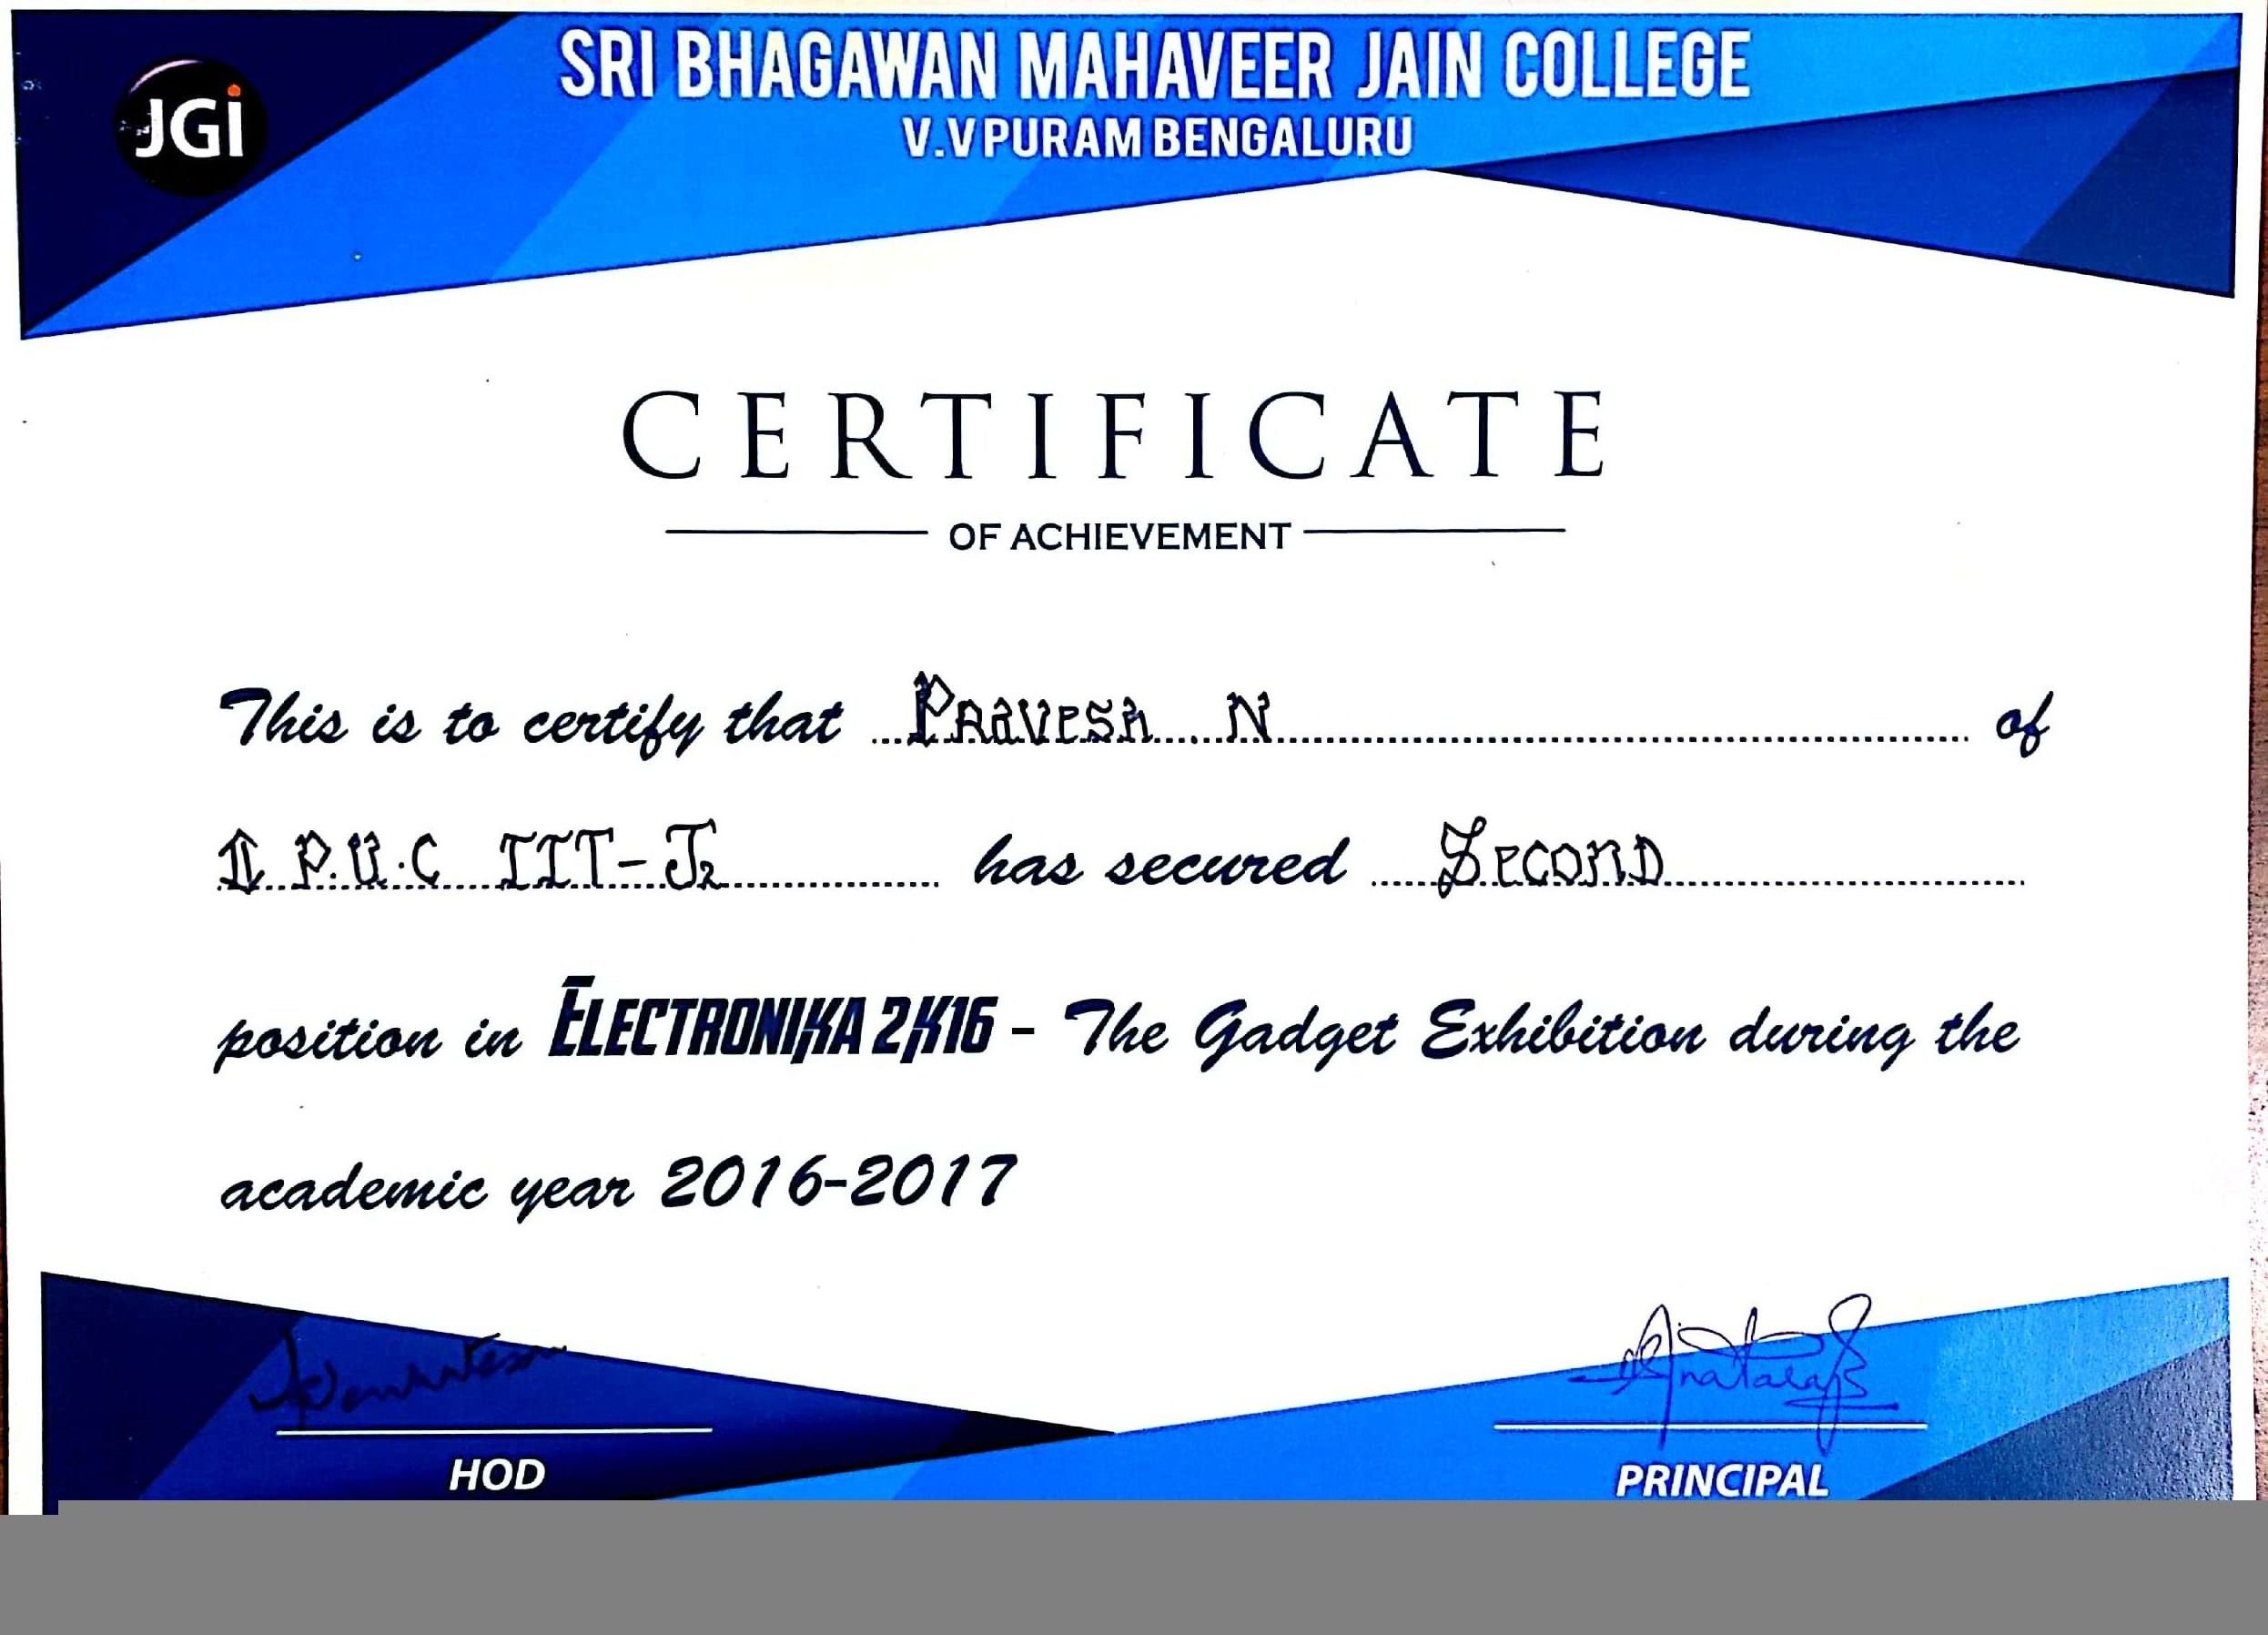 JGi
SRI BHAGAWAN MAHAVEER JAIN COLLEGE
V.V PURAM BENGALURU
CERTIFICATE
OF ACHIEVEMENT
This is to certify that Pravesh . N of
I P.U.C IIT-J2 has secured Second
position in ELECTRONIKA 2K16 - The Gadget Exhibition during the
academic year 2016-2017
HOD
PRINCIPAL